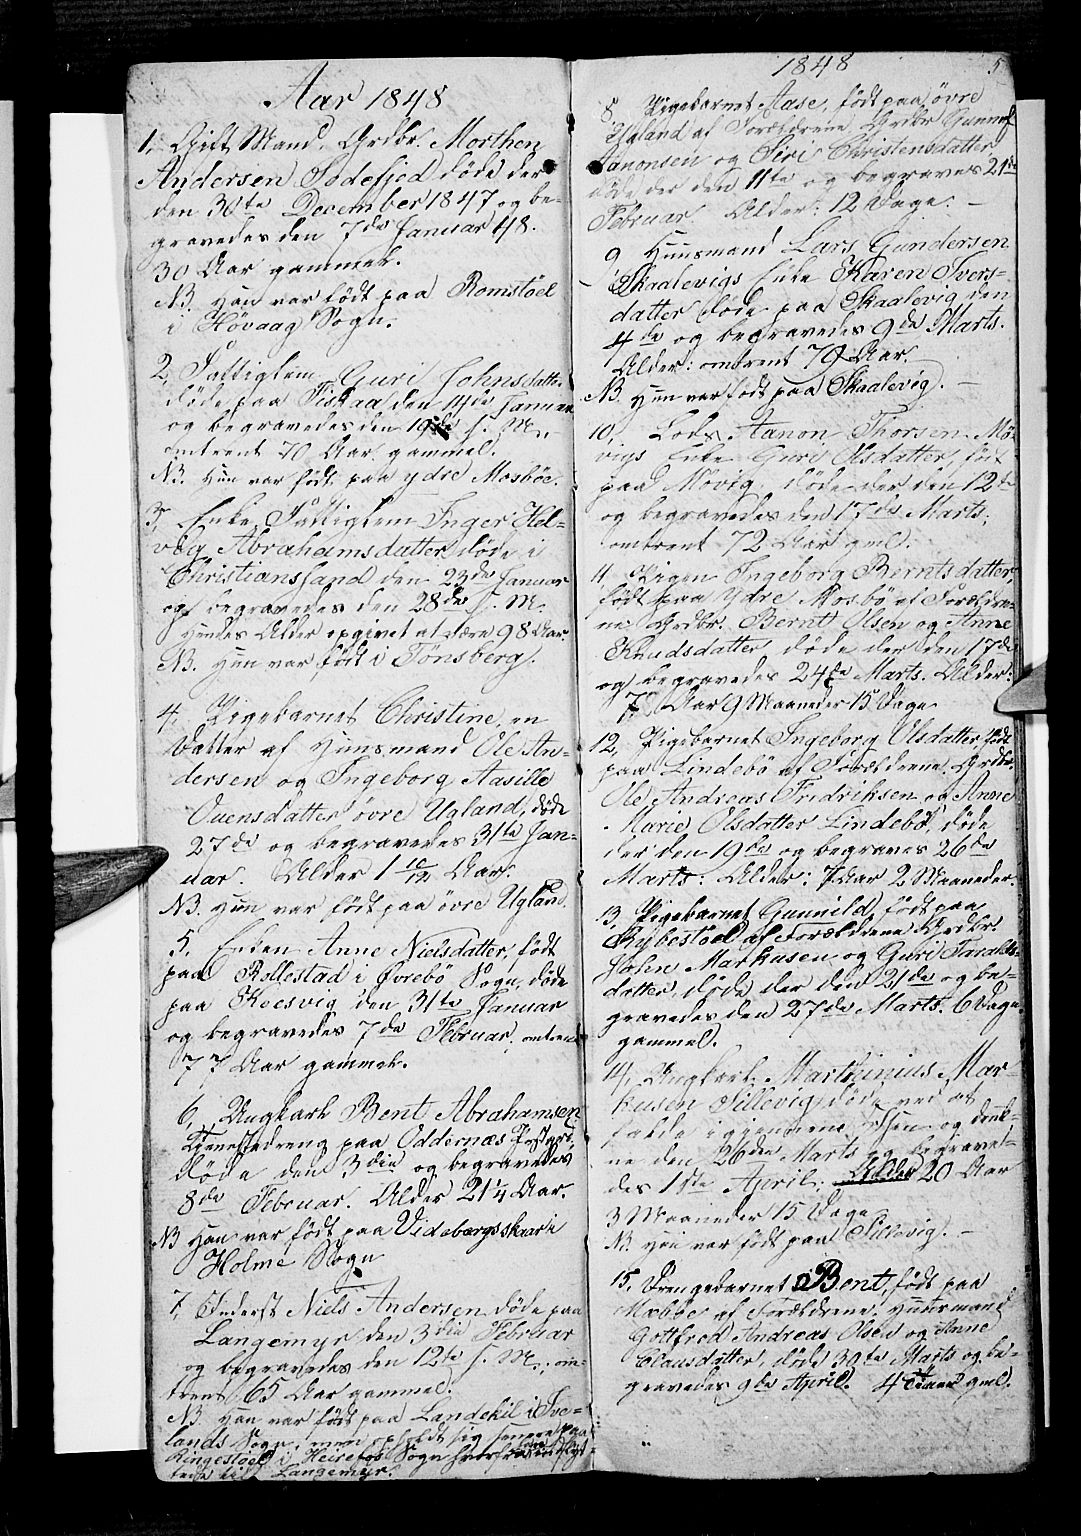 Aar 1848
1, Gift Mand, Grdbr. Morthen
Andersen Sodefjed døde der
den 30te December 1847 og be-
gravedes den 7de Januar 48.
30 Aar gammel.
NB. Han var født paa Romstøel
i Høvaag Sogn.
2, Fattiglem Guri Johnsdatter
døde paa Fiskaa den 11de Januar
og begravedes den 19de s. M.,
omtrent 70 Aar gammel.
NB. Hun var født paa ydre Mosbøe.
3, Enke Fattiglem Inger Hel-
vig Abrahamsdatter døde i
Christianssand den 23de Januar
og begravedes den 28de s. M.
Hendes Alder opgivet at være 98 Aar
NB. Hun var født i Tønsberg.
4, Pigebarnet Christine, en
Datter af Huusmand Ole An-
dersen og Ingeborg Aasille
Ouensdatter øvre Ugland, døde
27de og begravedes 31te Jan-
uar. Alder 1 10/12 Aar.
NB. Hun var født paa øvre Ugland.
5, Enken Anne Nielsdatter, født
paa Rollestad i Øvrebø Sogn, døde
paa Kroesvig den 31te Januar
og begravedes 7de Februar, omtrent
77 Aar gammel.
6, Ungkarl Bent Abrahamsen,
Tjenestedreng paa Oddernæs Præstgrd.
døde den 3die og begravedes
8de Februar. Alder 21 1/4 Aar.
NB Han var født paa Videbergsskaar i
Holme Sogn
7, Inderst Niels Andersen døde paa
Langemyr den 3die Februar
og begravedes den 12te s. M., om-
trent 65 Aar gammel.
NB. Han var født paa Landekil i Eve-
lands Sogn, men opholdt sig senere paa
Ringestøel i Heirefos Sogn hvorfra han indflyt
tede til Langemyr.
1848 5
8, Pigebarnet Aase, født paa øvre
Ugland af Forældrene Grdbr Gunnuf
Aanonsen og Siri Christensdatter
døde der den 11te og begraves 21de
Februar Alder: 12 Dage. —
9 Huusmand Lars Gundersen
Skaalevigs Enke Karen Ivers-
datter døde paa Skaalevig den
4de og begravedes 9de Marts.
Alder: omtrent 79 Aar.
NB. Hun var født paa Skaalevig. —
10, Lods Aanon Thorsen Mø-
vigs Enke Guri Olsdatter, født
paa Møvig, døde der den 12te
og begravedes den 17de Marts,
omtrent 72 Aar gml.
11 Pigen Ingeborg Berntsdatter,
født paa Ydre Mosbø af Forældre-
ne Grdbr. Bernt Olsen og Anne
Knudsdatter, døde der den 17de
og begravedes 24de Marts. Alder:
7 Aar 9 Maaneder 15 Dage
12, Pigebarnet Ingeborg Olsdatter, født
paa Lindebø af Forældrene Grdbr.
Ole Andreas Fridriksen og Anne
Marie Olsdatter Lindebø, døde
der den 19de og begraves 26de
Marts: Alder: 7 Aar 2 Maaneder.
13, Pigebarnet Gunnild, født paa
Rybestøel af Forældrene Grdbr.
John Markusen og Guri Taralds-
datter, døde der den 21de og be-
gravedes den 27de Marts. 6 Dage
gammel.
14, Ungkarl Marthinius Mar-
kusen Sillevig døde ved at
falde igjennem Isen og druk-
ne den 26de Marts og begrave-
des 1ste April. Alder 20 Aar
3 Maaneder 15 Dage
NB. Han var født paa Sillevig. —
15, Drengebarnet Bent, født paa
Mosbøe af Forældrene, Huusmand
Gottfred Andreas Olsen og Anne
Clausdatter, døde 30te Marts og be-
gravedes 9de April. 4 gml.